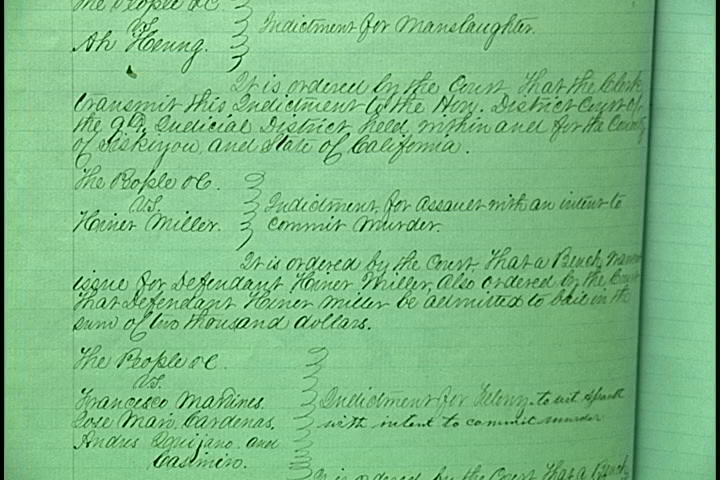 The People &C.
vs.
Ah Heung.
Indictment for Manslaughter.
It is ordered by the Court That the Clerk
transmit this Indictment to the Hon. District Court of
the 9th Judicial District, held within and for the County
of Siskiyou, and State of California.
The People &C.
vs.
Hiner Miller.
Indictment, for Assault with an intent to
commit Murder.
It is ordered by the Court, That a Bench
issue for Defendant Hiner Miller, Also ordered by the Court
That Defendant Hiner Miller be admitted to bail in the
sum of two thousand dollars.
The People &C.
vs.
Francesco Martines.
Jose Mari Cardenas.
Andres Quijano and
Casimiro.
Indictment for Felony. to wit
with intent to commit murder
It is ordered by the Court That a Bench